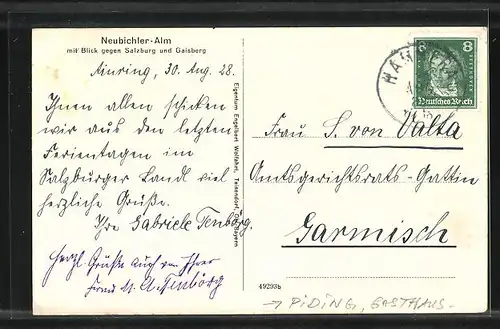 Neubichler-Alm
mit Blick gegen Salzburg und Gaisberg
Ainring, 30. Aug. 28.
Ihnen allen schicken
wir aus den letzten
Ferientagen im
Salzburger Land viel
herzliche Grüße.
Ihre Gabriele Tenbörg.
Herzl. Grüße auch von Ihrer
Eigentum Engelbert Wolfahrt, Teisendorf, Ob.-Bayern
49293b
8 8
Deutsches Reich
Frau S. von Valta
Amtsgerichtsrats-Gattin
Garmisch
→ PIDING, GASTHAUS-